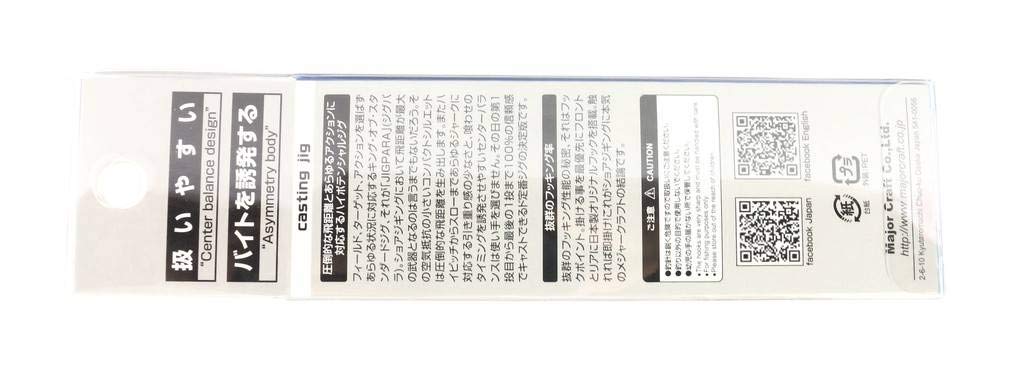 扱いやすい
"Center balance design"
バイトを誘発する
"Asymmetry body"
casting jig
圧倒的な飛距離とあらゆるアクションに
対応するハイポテンシャルジグ
フィールド、ターゲット、アクションを選ばず
あらゆる状況に対応するキング・オブ・スタ
ンダードジグ、それが「JIGPARA」(ジグパ
ラ)。ショアジギングにおいて飛距離が最大
の武器となるのは言うまでもないだろう。そ
の空気抵抗の小さいコンパクトシルエット
は圧倒的な飛距離を生み出します。またハ
イピッチからスローまであらゆるジャークに
対応する引き重り感の少なさと、喰わせの
タイミングを誘発させやすいセンターバラ
ンスは使い手を選びません。その日の第1
投目から最後の1投まで100%の信頼感
でキャストできるド定番ジグの決定版です。
抜群のフッキング率
抜群のフッキング性能の秘密、それはフッ
クポイント、掛ける事を最優先にフロント
とリアに日本製オリジナルフックを搭載。触
れれば即掛け!これがショアジギングに本気
のメジャークラフトの結論です。
ご注意 ⚠ CAUTION
●釣針は鋭く危険ですので取扱いにご注意ください。
●釣り以外の目的で使用しないでください。
●幼児の手の届かない所で保管してください。
●The hooks are very sharp
●For fishing purposes only.
●Please store out of the reach of children.
facebook Japan
facebook English
紙
台紙
プラ
外装:PET
Major Craft Co.,Ltd.
http://www.majorcraft.co.jp
2-6-10 Kyutaromachi Chuo-ku Osaka Japan 541-0056